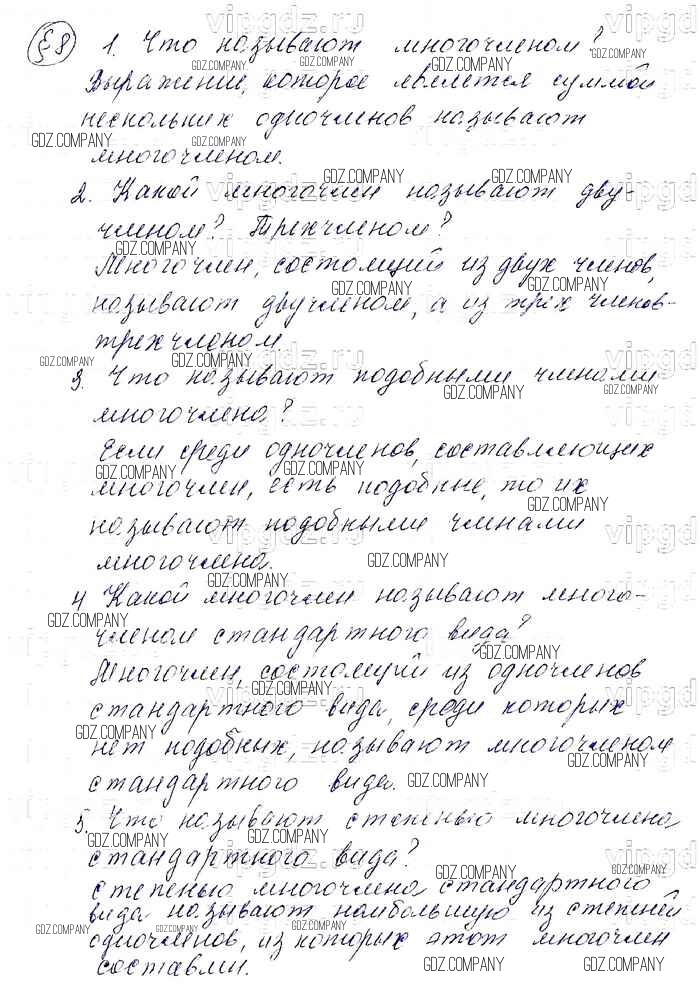 §8 1. Что называют многочленом?
Выражение, которое является суммой
нескольких одночленов называют
многочленом.
2. Какой многочлен называют дву-
членом? Трехчленом?
Многочлен, состоящий из двух членов,
называют двучленом, а из трех членов-
трехчленом.
3. Что называют подобными членами
многочлена?
Если среди одночленов, составляющих
многочлен, есть подобные, то их
называют подобными членами
многочлена.
4 Какой многочлен называют много-
членом стандартного вида?
Многочлен, состоящий из одночленов
стандартного вида, среди которых
нет подобных, называют многочленом
стандартного вида.
5. Что называют степенью многочлена
стандартного вида?
Степенью многочлена стандартного
вида называют наибольшую из степеней
одночленов, из которых этот многочлен
составлен.
GDZ.COMPANY
vipgdz.ru